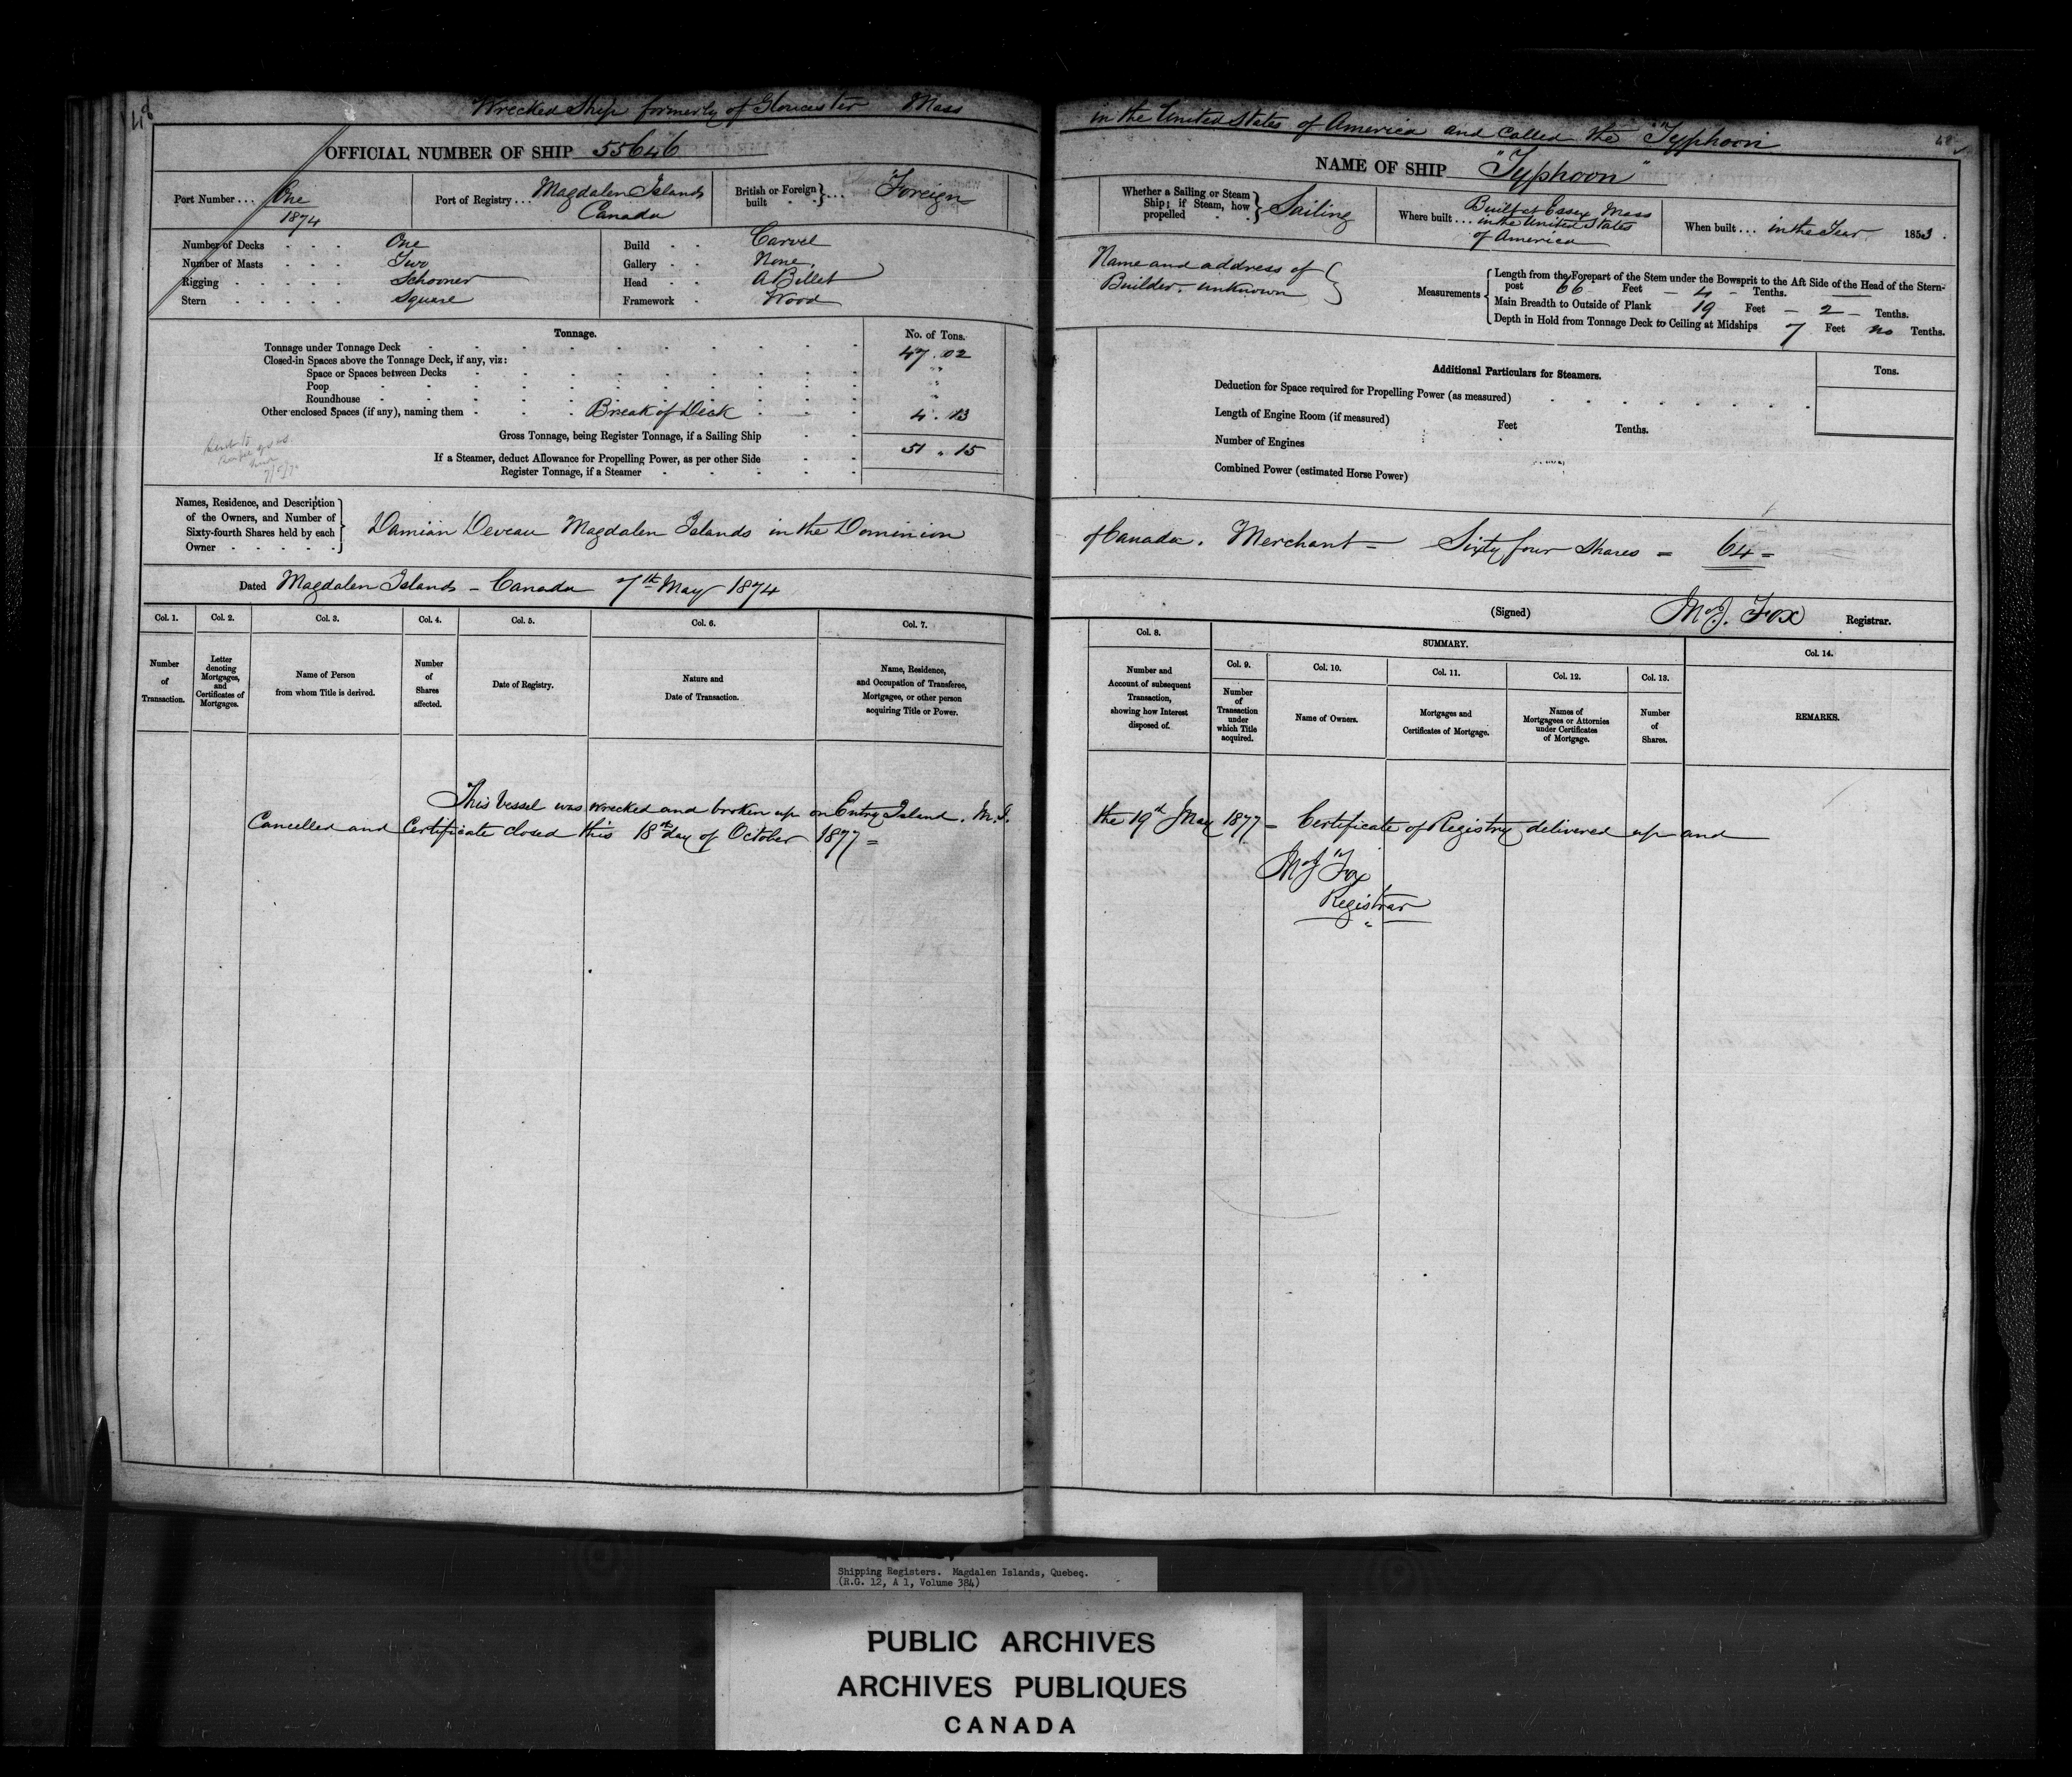 48
Wrecked Ship formerly of Gloucester Mass
OFFICIAL NUMBER OF SHIP 55646
Port Number ... One
1874
Port of Registry ... Magdalen Islands
Canada
British or Foreign built } ... Foreign
Number of Decks One
Number of Masts Two
Rigging Schooner
Stern Square
Build Carvel
Gallery None
Head A Billet
Framework Wood
Tonnage.
No. of Tons.
Tonnage under Tonnage Deck 47.02
Closed-in Spaces above the Tonnage Deck, if any, viz:
Space or Spaces between Decks "
Poop "
Roundhouse "
Other enclosed Spaces (if any), naming them Break of Deck 4.13
Gross Tonnage, being Register Tonnage, if a Sailing Ship 51.15
If a Steamer, deduct Allowance for Propelling Power, as per other Side
Register Tonnage, if a Steamer
Names, Residence, and Description
of the Owners, and Number of
Sixty-fourth Shares held by each
Owner
Damian Deveau Magdalen Islands in the Dominion
Dated Magdalen Islands - Canada 7th May 1874
Col. 1.
Number
of
Transaction.
Col. 2.
Letter
denoting
Mortgages,
and
Certificates of
Mortgages.
Col. 3.
Name of Person
from whom Title is derived.
Col. 4.
Number
of
Shares
affected.
Col. 5.
Date of Registry.
Col. 6.
Nature and
Date of Transaction.
Col. 7.
Name, Residence,
and Occupation of Transferee,
Mortgagee, or other person
acquiring Title or Power.
This Vessel was wrecked and broken up on Entry Island. M.I.
Cancelled and Certificate closed this 18th day of October 1877 =
in the United States of America and called the "Typhoon
48
NAME OF SHIP "Typhoon"
Whether a Sailing or Steam
Ship; if Steam, how
propelled
Sailing
Where built ... Built at Essex Mass
in the United States
of America
When built ... in the Year 1853.
Name and address of
Builder. unknown
Measurements
Length from the Forepart of the Stem under the Bowsprit to the Aft Side of the Head of the Stern-
post 66 Feet - 4 - Tenths.
Main Breadth to Outside of Plank 19 Feet - 2 - Tenths.
Depth in Hold from Tonnage Deck to Ceiling at Midships 7 Feet no Tenths.
Additional Particulars for Steamers.
Tons.
Deduction for Space required for Propelling Power (as measured)
Length of Engine Room (if measured) Feet Tenths.
Number of Engines
Combined Power (estimated Horse Power)
of Canada. Merchant - Sixty four Shares = 64 =
(Signed) M J. Fox Registrar.
Col. 8.
Number and
Account of subsequent
Transaction,
showing how Interest
disposed of.
SUMMARY.
Col. 9.
Number
of
Transaction
under
which Title
acquired.
Col. 10.
Name of Owners.
Col. 11.
Mortgages and
Certificates of Mortgage.
Col. 12.
Names of
Mortgagees or Attornies
under Certificates
of Mortgage.
Col. 13.
Number
of
Shares.
Col. 14.
REMARKS.
the 19th May 1877 - Certificate of Registry delivered up and
M J Fox
Registrar
Shipping Registers. Magdalen Islands, Quebec.
(R.G. 12, A 1, Volume 384)
PUBLIC ARCHIVES
ARCHIVES PUBLIQUES
CANADA